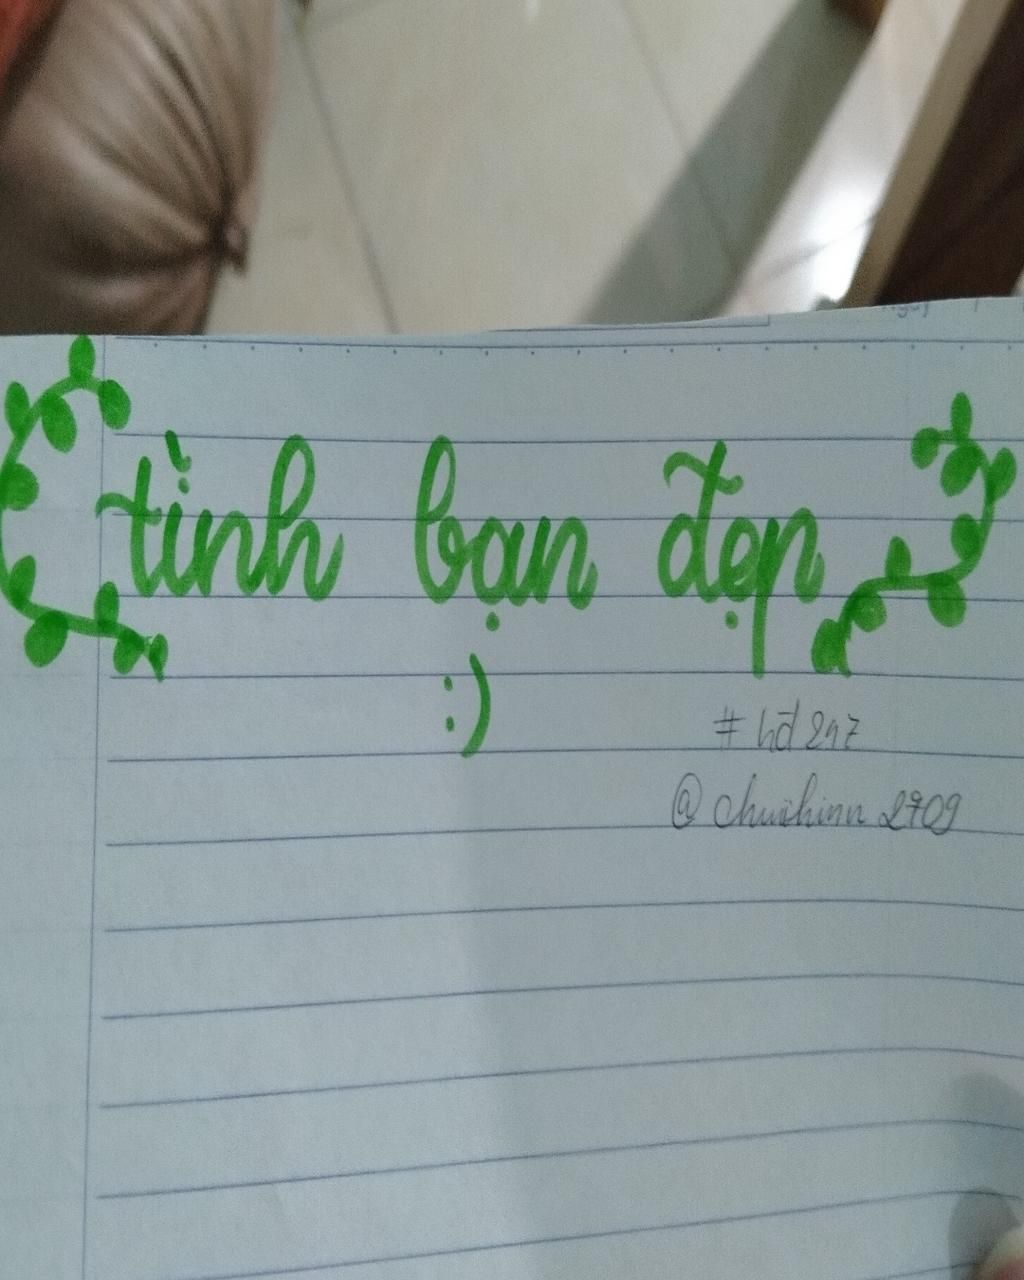 tình bạn đẹp
:)
#hđ247
@chuxhinn2709